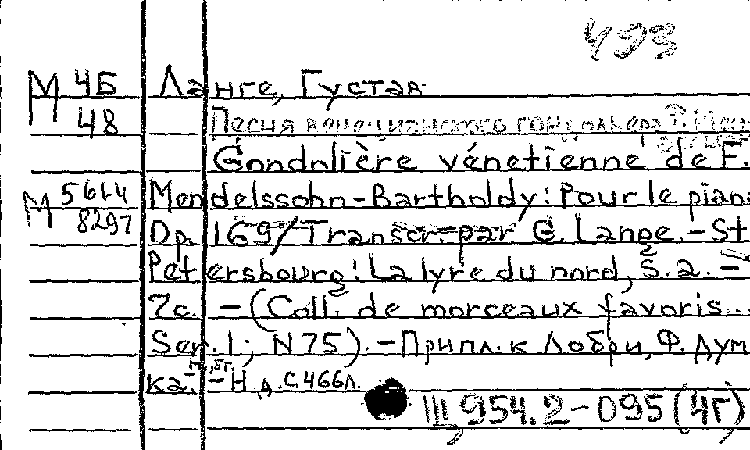 493
М 4Б Ланге, Густав
48 Песня венецианского гондольера
Gondolière vénetienne de F.
М 561-4 Mendelssohn-Bartholdy: Pour le piano
8297 Op. 169/Transcr. par G. Lange. - St
Petersbourg: La lyre du nord, s.a. -
7c. - (Coll. de morceaux favoris...
Ser. 1; N 75). - Припл. к Лобри, Ф. Дум
ка. - Н.д. с.466л.
Щ954.2-095(4Г)